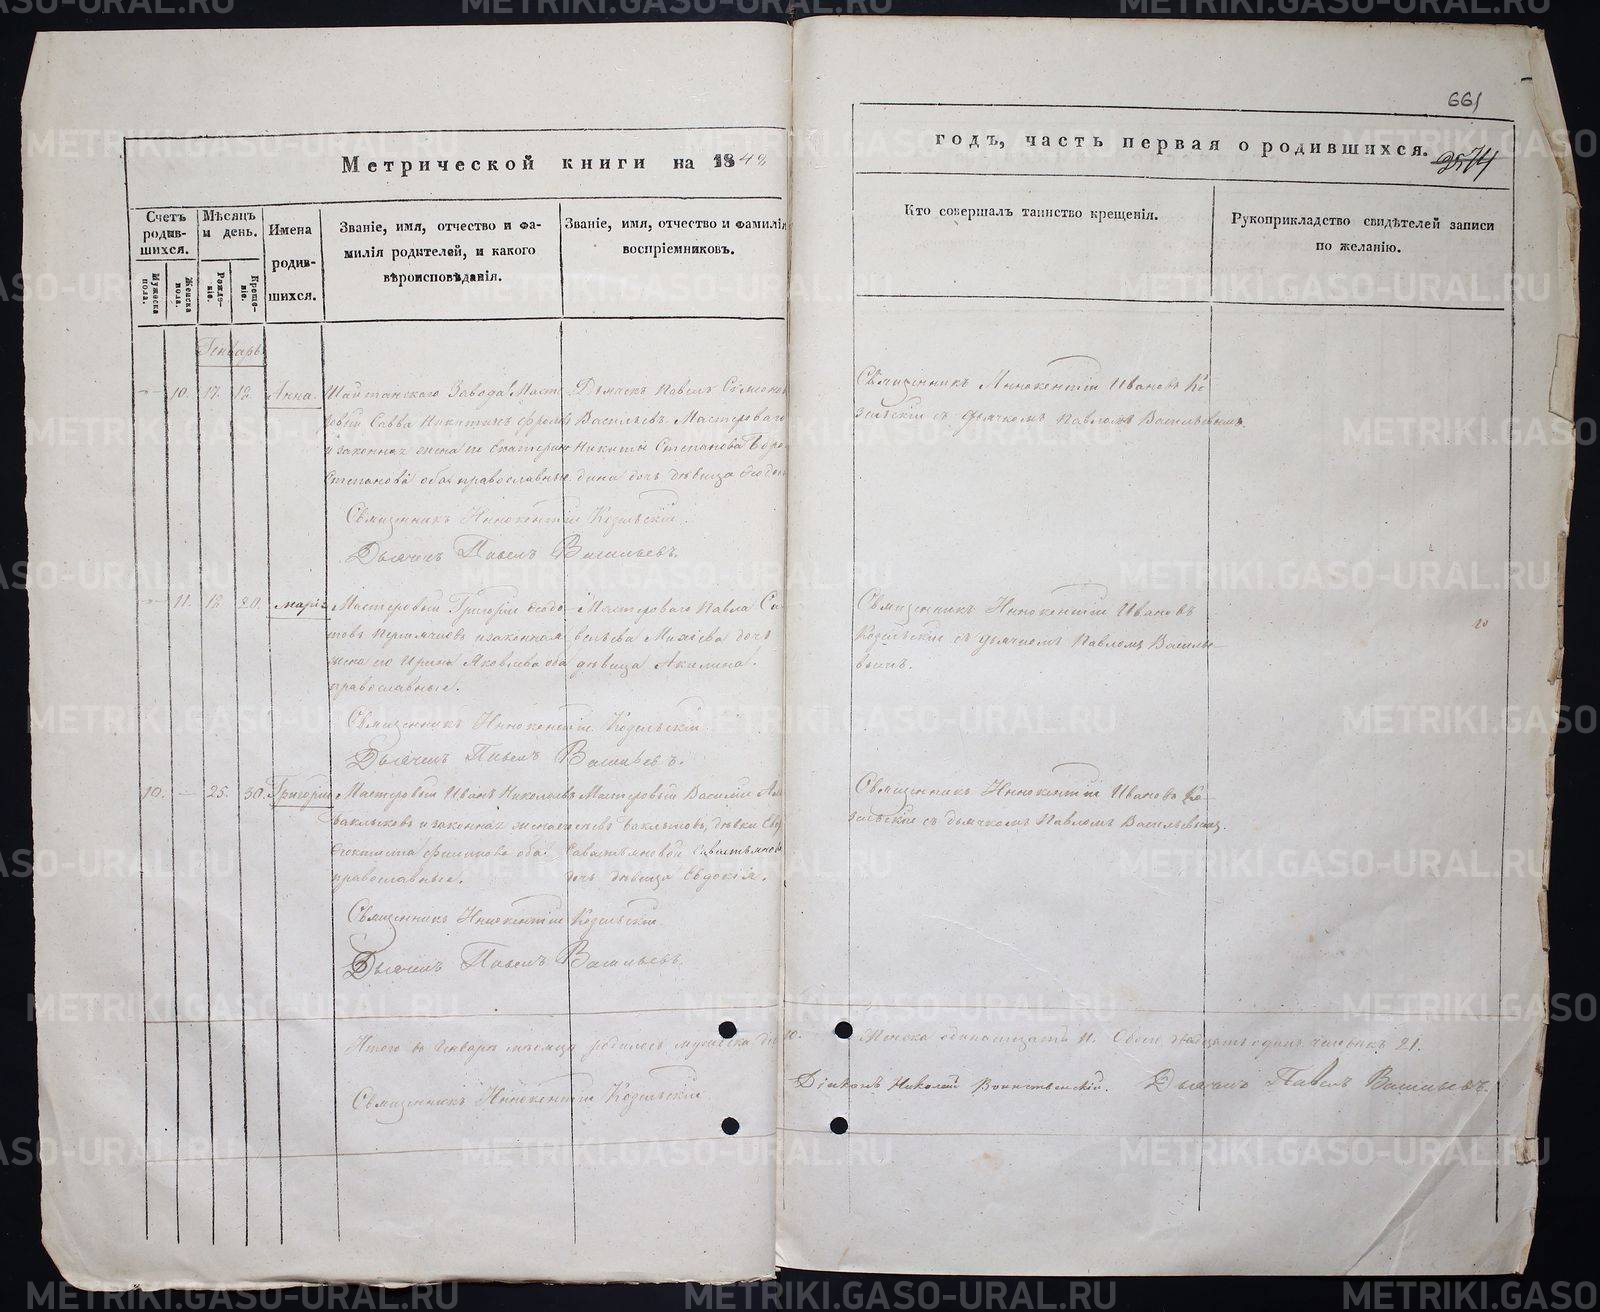 661
Метрической книги на 1848
годъ, часть первая о родившихся.
Счетъ родив-шихся.
Мужеска пола.
Женска пола.
Мѣсяцъ и день.
Рожде-ніе.
Креще-ніе.
Имена родив-шихся.
Званіе, имя, отчество и фа-
милія родителей, и какого
вѣроисповѣданія.
Званіе, имя, отчество и фамилія
воспріемниковъ.
Кто совершалъ таинство крещенія.
Рукоприкладство свидѣтелей записи
по желанію.
Генварь
10. 17. 18. Анна.
Шайтанскаго Завода Масте
ровый Савва Никитинъ
и законная жена его Екатерина
Степанова оба православные
Дьячекъ Павелъ Симеоновъ
Васильевъ. Мастероваго
Никиты Степанова
дина дочь дѣвица
Священникъ Иннокентій Ивановъ Ко
зельскій съ дьячкомъ Павломъ Васильевымъ.
Священникъ Иннокентій Козельскій.
Дьячекъ Павелъ Васильевъ.
11. 18. 20. Марія
Мастеровый Григорій Ѳедо
товъ и законная
жена его Ирина Яковлева оба
православные.
Мастероваго Павла Са
вельева Михѣева дочь
дѣвица Акилина.
Священникъ Иннокентій Ивановъ
Козельскій съ дьячкомъ Павломъ Василь-
евымъ.
Священникъ Иннокентій Козельскій.
Дьячекъ Павелъ Васильевъ.
10. — 25. 30. Григорій
Мастеровый Иванъ Николаевъ
Баклыковъ и законная жена его
Ѳеоктиста Филипова оба
православные.
Мастеровый Василій Але
ксѣевъ Баклыковъ, дѣвки
дочь дѣвица Евдокія.
Священникъ Иннокентій Ивановъ Ко-
зельскій съ дьячкомъ Павломъ Васильевымъ.
Священникъ Иннокентій Козельскій
Дьячекъ Павелъ Васильевъ.
Итого въ Генварѣ мѣсяцѣ родилось мужеска 10. Женска одинадцать 11. Обоего двадцать одинъ человѣкъ 21.
Священникъ Иннокентій Козельскій
Діаконъ Николай Воинственскій. Дьячекъ Павелъ Васильевъ.
METRIKI.GASO-URAL.RU